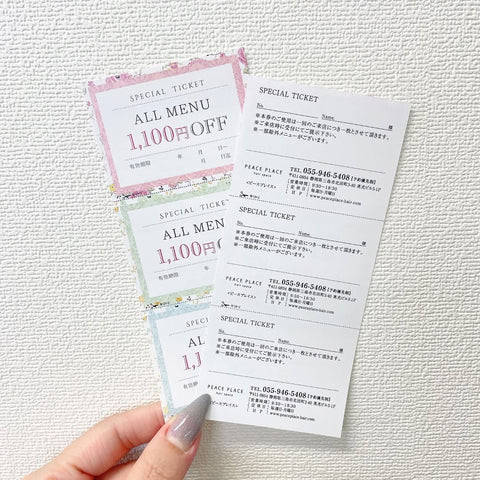 SPECIAL TICKET
ALL MENU
1,100円OFF
有効期限 年 月 日〜
月 日迄
SPECIAL TICKET
ALL MENU
1,100円OFF
有効期限
SPECIAL TICKET
ALL
1,1
有効期限
SPECIAL TICKET
No. Name 様
※本券のご使用は一回のご来店につき一枚とさせて頂きます。
※ご来店時に受付にてご提示下さい。
※一部除外メニューがございます。
PEACE PLACE
hair space
<ピースプレイス>
TEL.055-946-5408【予約優先制】
〒411-0854 静岡県三島市北田町3-40 英光ビル5-1F
[営業時間] 9:30~18:30
[定休日] 毎週の月曜日
[H P] www.peaceplace-hair.com
SPECIAL TICKET
No. Name 様
※本券のご使用は一回のご来店につき一枚とさせて頂きます。
※ご来店時に受付にてご提示下さい。
※一部除外メニューがございます。
PEACE PLACE
hair space
<ピースプレイス>
TEL.055-946-5408【予約優先制】
[営業時間] 9:30~18:30
[定休日] 毎週の月曜日
[H P] www.peaceplace-hair.com
SPECIAL TICKET
No. Name 様
※本券のご使用は一回のご来店につき一枚とさせて頂きます。
※ご来店時に受付にてご提示下さい。
※一部除外メニューがございます。
PEACE PLACE
hair space
<ピースプレイス>
TEL.055-946-5408【予約優先制】
[営業時間] 9:30~18:30
[定休日] 毎週の月曜日
[H P] www.peaceplace-hair.com